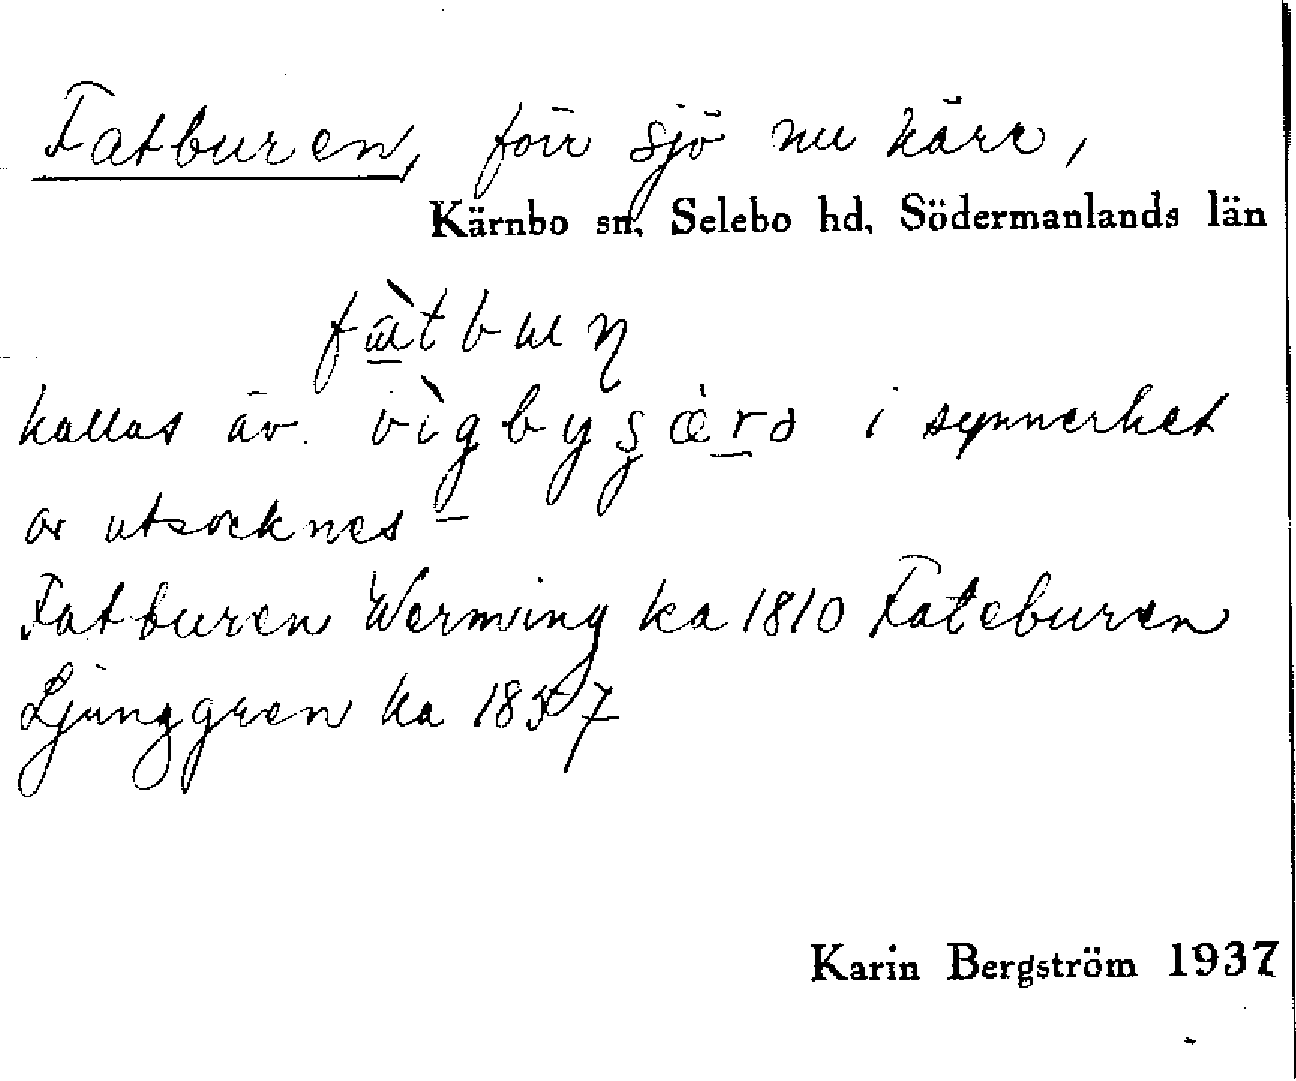 Fatburen, förr sjö nu kärr,
Kärnbo sn, Selebo hd, Södermanlands län
fàtbuɳ
kallas äv. vìgbyʂærd i synnerhet
av utsocknes –
Fatburen Werming ka 1810 Fateburen
Ljunggren ka 1857
Karin Bergström 1937